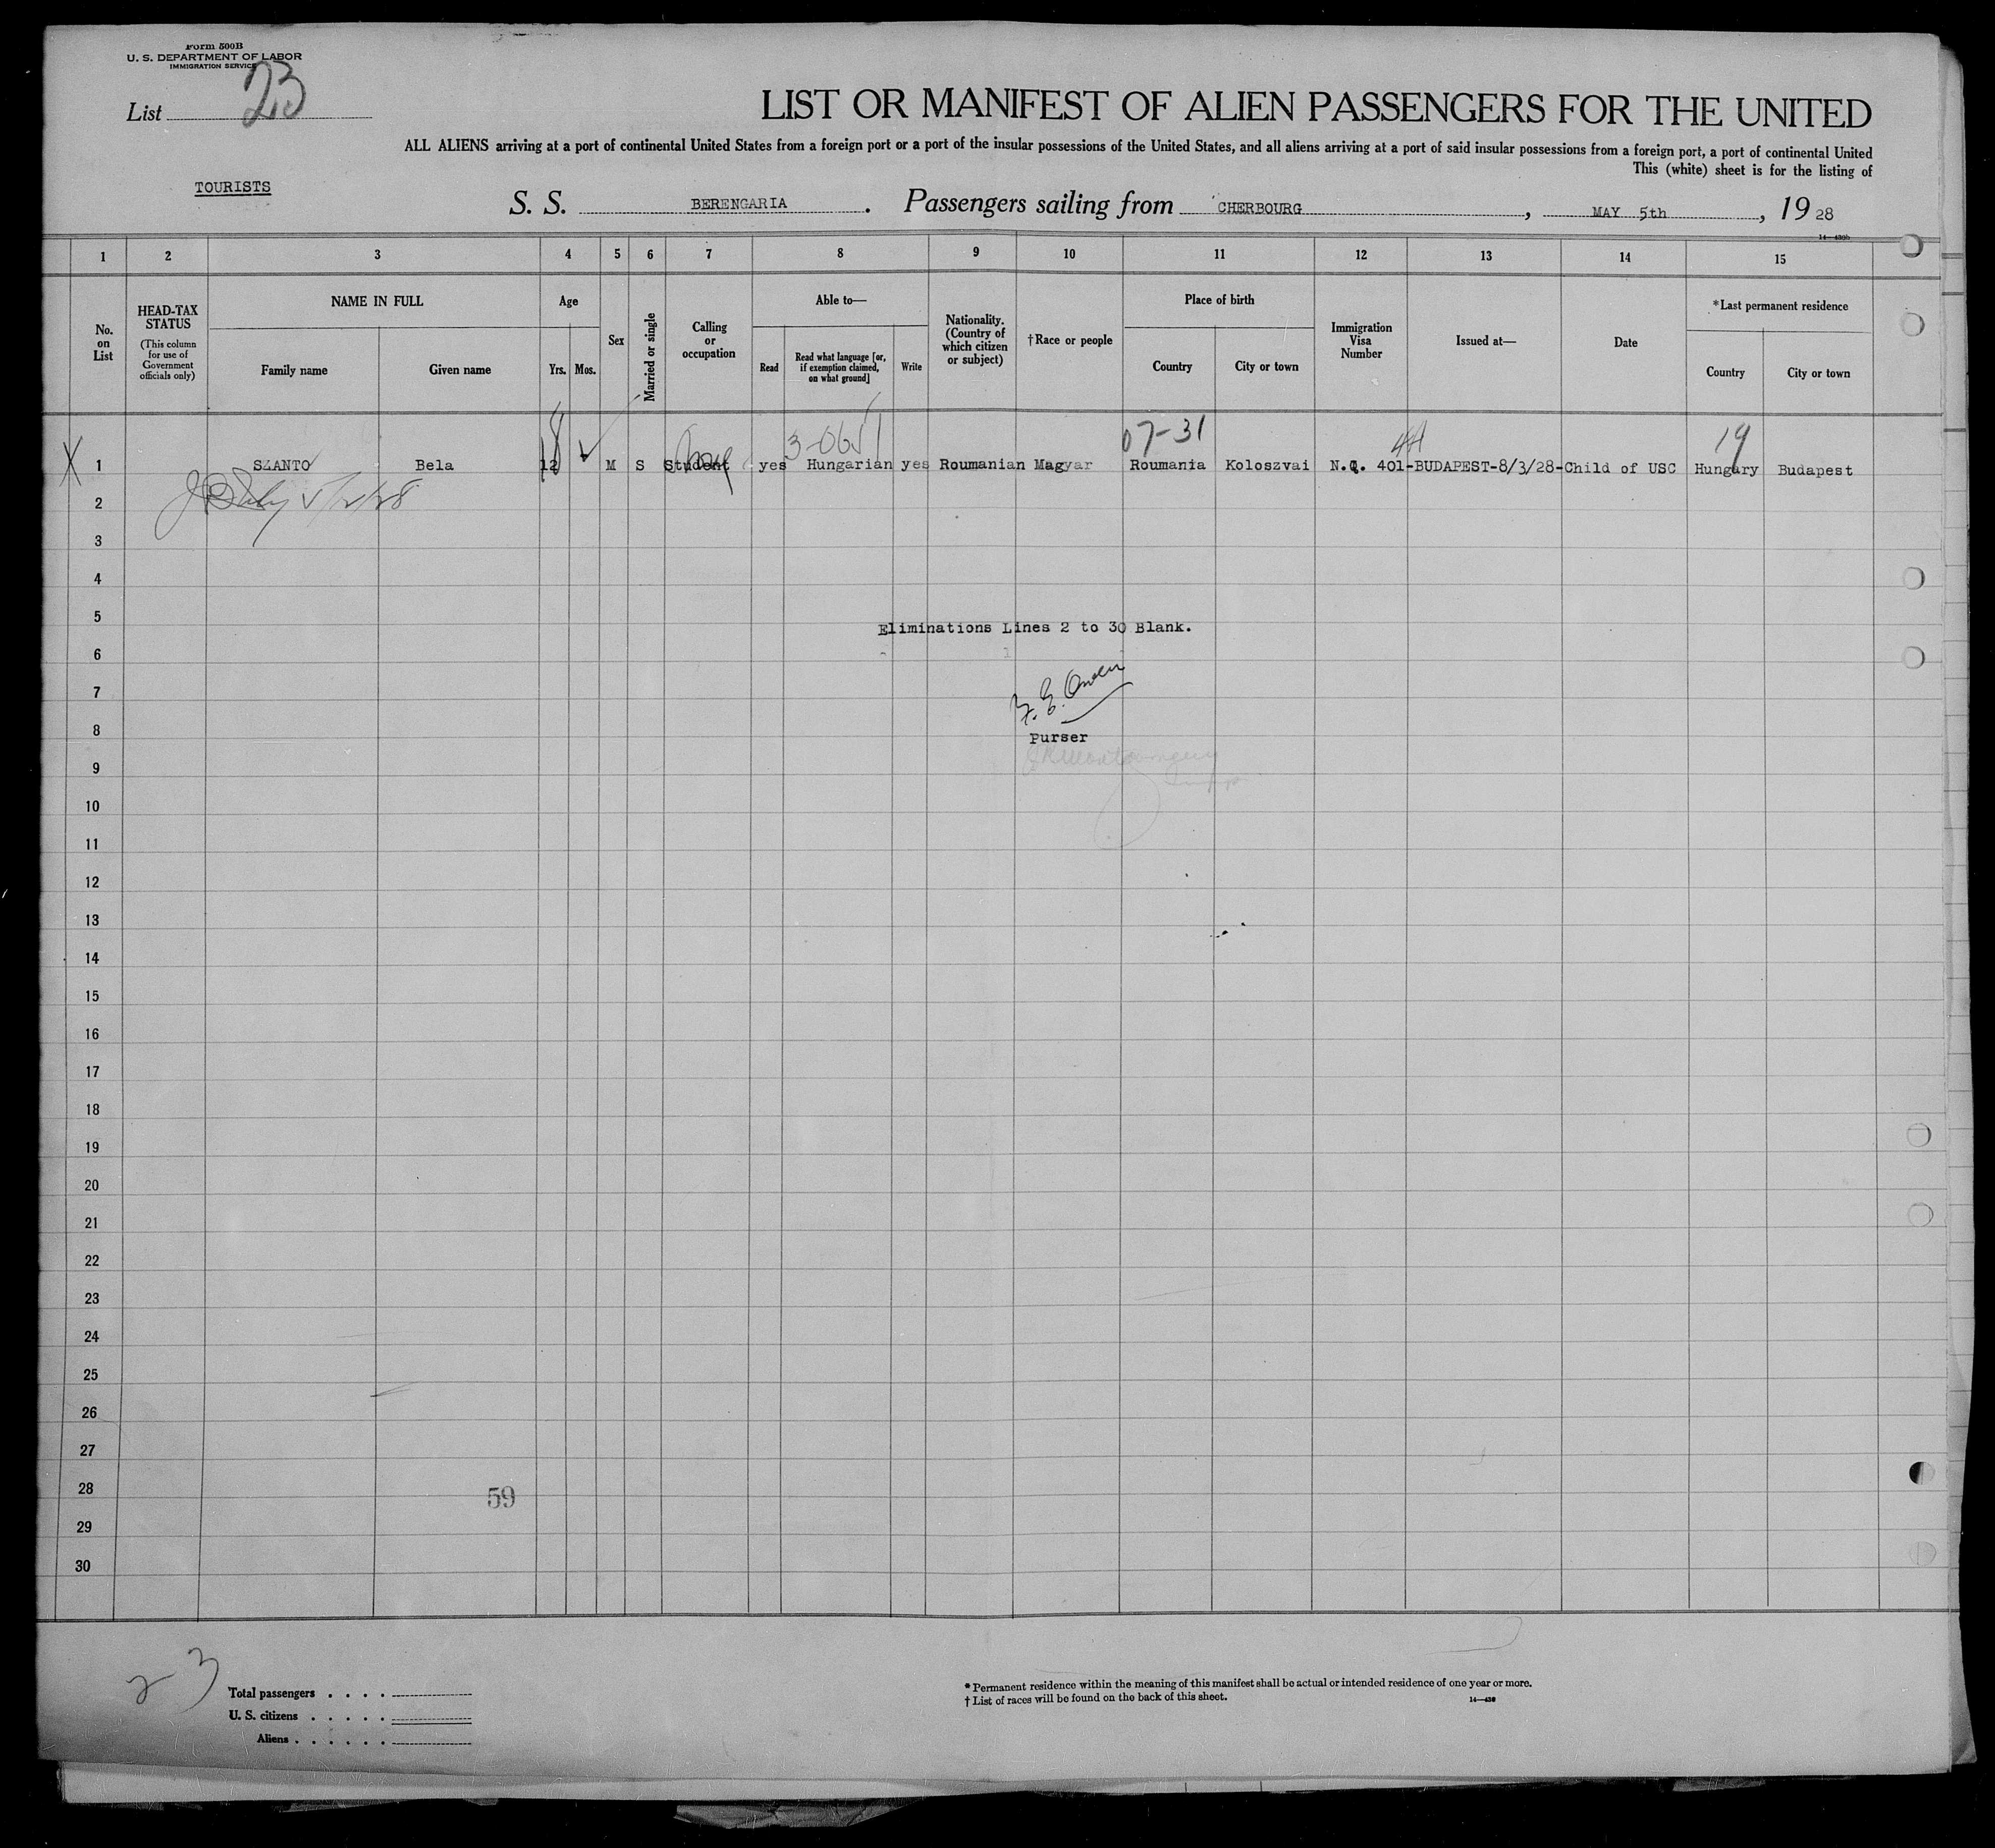 Form 500B
U. S. DEPARTMENT OF LABOR
IMMIGRATION SERVICE
List 23
LIST OR MANIFEST OF ALIEN PASSENGERS FOR THE UNITED
ALL ALIENS arriving at a port of continental United States from a foreign port or a port of the insular possessions of the United States, and all aliens arriving at a port of said insular possessions from a foreign port, a port of continental United
This (white) sheet is for the listing of
TOURISTS
S. S. BERENGARIA. Passengers sailing from CHERBOURG, MAY 5th, 19 28
1 2 3 4 5 6 7 8 9 10 11 12 13 14 15
No. on List
HEAD-TAX STATUS
(This column for use of Government officials only)
NAME IN FULL
Family name Given name
Age
Yrs. Mos.
Sex
Married or single
Calling or occupation
Able to—
Read
Read what language [or, if exemption claimed, on what ground]
Write
Nationality. (Country of which citizen or subject)
†Race or people
Place of birth
Country City or town
Immigration Visa Number
Issued at—
Date
*Last permanent residence
Country City or town
07-31 19
1 SZANTO Bela M S Student yes Hungarian yes Roumanian Magyar Roumania Koloszvai N.Q. 401-BUDAPEST-8/3/28-Child of USC Hungary Budapest
2 5/12/28
3
4
5
Eliminations Lines 2 to 30 Blank.
6
7
8
Purser
9
10
11
12
13
14
15
16
17
18
19
20
21
22
23
24
25
26
27
28
59
29
30
23
Total passengers . . . .
U. S. citizens . . . . .
Aliens . . . . . .
* Permanent residence within the meaning of this manifest shall be actual or intended residence of one year or more.
† List of races will be found on the back of this sheet.